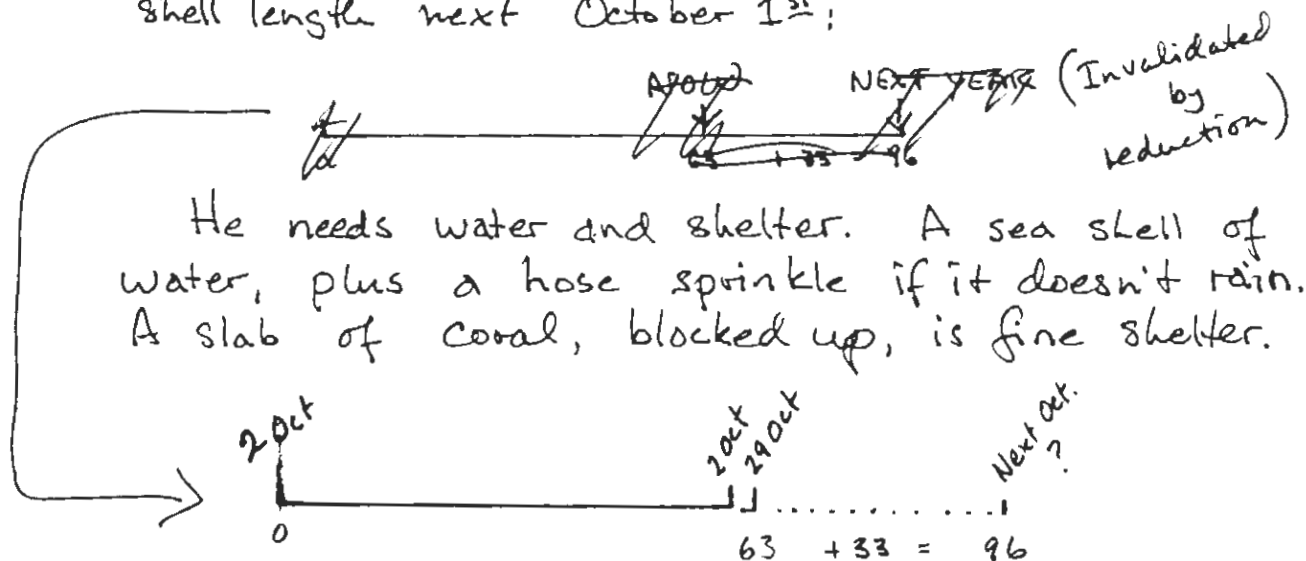 shell length next October 1st:
NEXT YEAR (Invalidated
by
reduction)
63 + 33 96
He needs water and shelter. A sea shell of
water, plus a hose sprinkle if it doesn't rain.
A slab of coral, blocked up, is fine shelter.
2 Oct 2 Oct 29 Oct Next Oct. ?
0 63 + 33 = 96